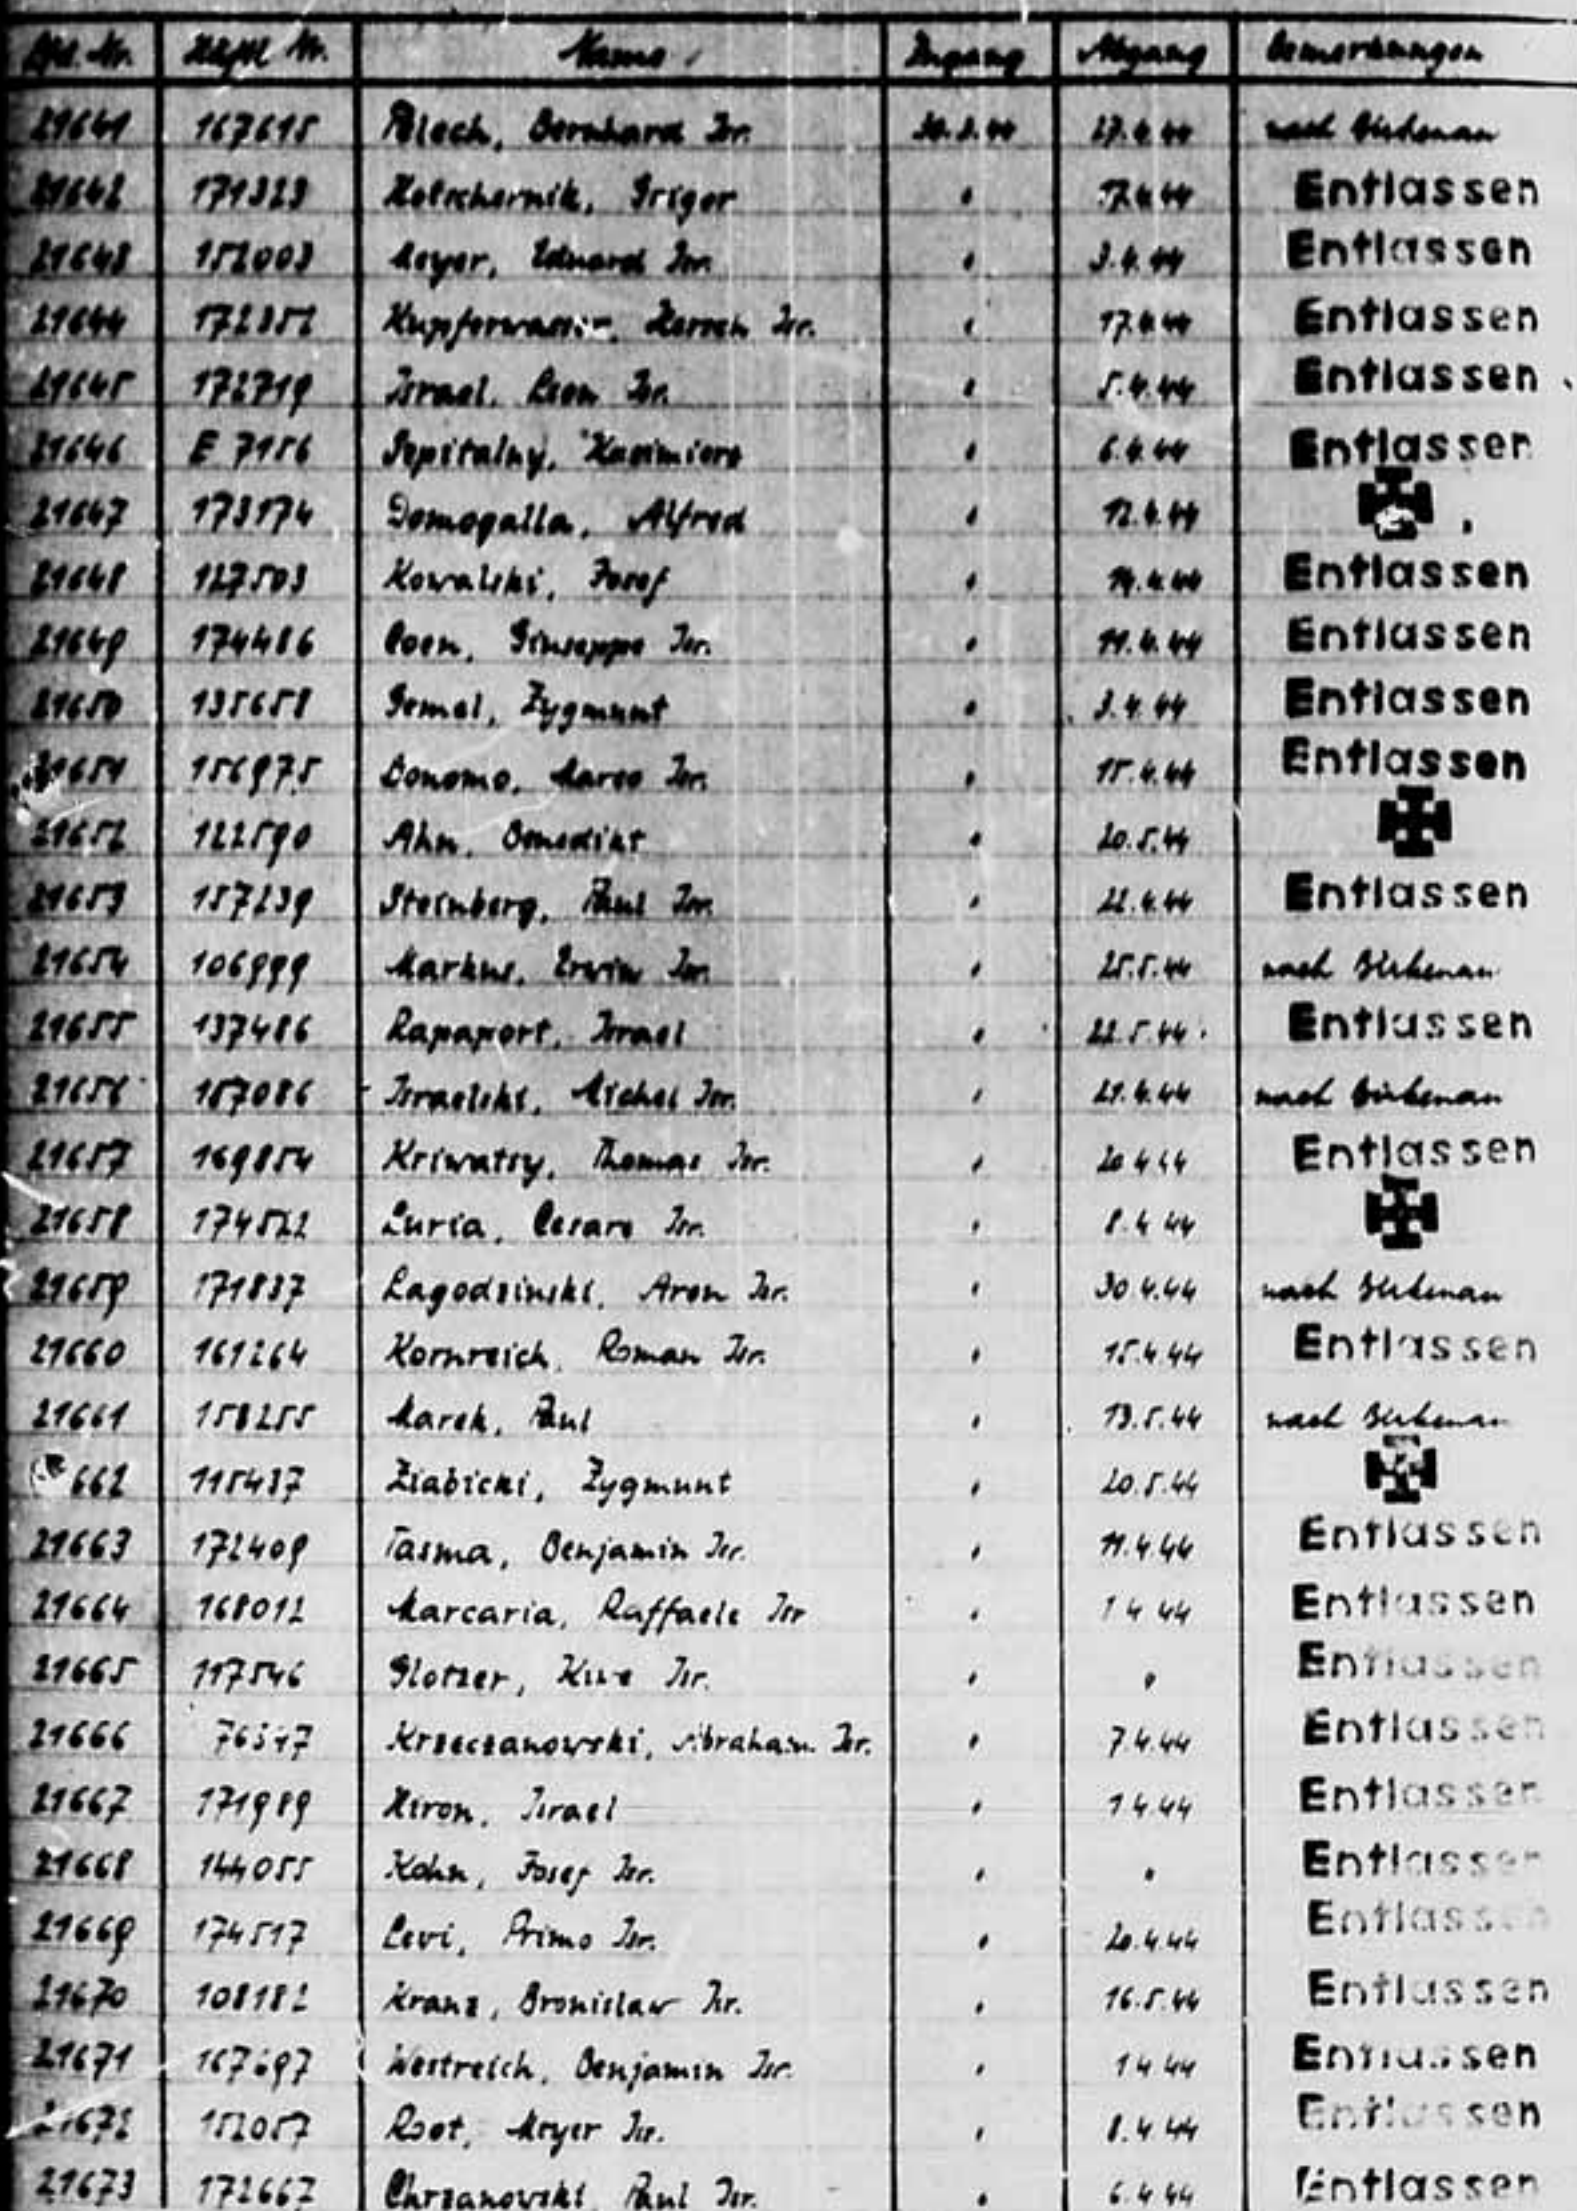 Lfd. Nr. Häftl. Nr. Name Zugang Abgang Bemerkungen
21641 167615 Blech, Bernhard Isr. 30.3.44 27.4.44 nach Birkenau
21642 171323 Kotschernik, Grigor " 17.4.44 Entlassen
21643 152003 Meyer, Eduard Isr. " 3.4.44 Entlassen
21644 172352 Kupferwasser, Hersch Isr. " 17.4.44 Entlassen
21645 172719 Israel, Leon Isr. " 5.4.44 Entlassen
21646 E 7156 Szpitalny, Kasimierz " 6.4.44 Entlassen
21647 173174 Domogalla, Alfred " 12.4.44
21648 127503 Kowalski, Josef " 14.4.44 Entlassen
21649 174486 Coen, Giuseppe Isr. " 11.4.44 Entlassen
21650 135658 Gemel, Zygmunt " 3.4.44 Entlassen
21651 156975 Bonomo, Marco Isr. " 15.4.44 Entlassen
21652 122590 Ahn, Benedikt " 20.5.44
21653 157239 Steinberg, Paul Isr. " 22.4.44 Entlassen
21654 106999 Markus, Erwin Isr. " 25.5.44 nach Birkenau
21655 137486 Rapaport, Israel " 22.5.44 Entlassen
21656 167086 Israelski, Michel Isr. " 21.4.44 nach Birkenau
21657 169854 Kriwatsy, Thomas Isr. " 20.4.44 Entlassen
21658 174522 Luria, Cesare Isr. " 8.4.44
21659 171837 Lagodzinski, Aron Isr. " 30.4.44 nach Birkenau
21660 161264 Kornreich, Roman Isr. " 15.4.44 Entlassen
21661 158255 Marek, Paul " 13.5.44 nach Birkenau
662 115437 Ziabicki, Zygmunt " 20.5.44
21663 172409 Tasma, Benjamin Isr. " 11.4.44 Entlassen
21664 168012 Marcaria, Raffaele Isr " 1 4 44 Entlassen
21665 117546 Glotzer, Isr. " " Entlassen
21666 Krzeczanowski, Abraham Isr. " 7.4.44 Entlassen
21667 171989 Hiron, Israel " 1 4.44 Entlassen
21668 144055 Kohn, Josef Isr. " " Entlassen
21669 174517 Levi, Primo Isr. " 20.4.44 Entlassen
21670 108182 Kranz, Bronislaw Isr. " 16.5.44 Entlassen
21671 167697 Westreich, Benjamin Isr. " 1 4 44 Entlassen
21672 152057 Root, Meyer Isr. " 8.4 44 Entlassen
21673 172667 Chrzanowski, Paul Isr. " 6.4 44 Entlassen